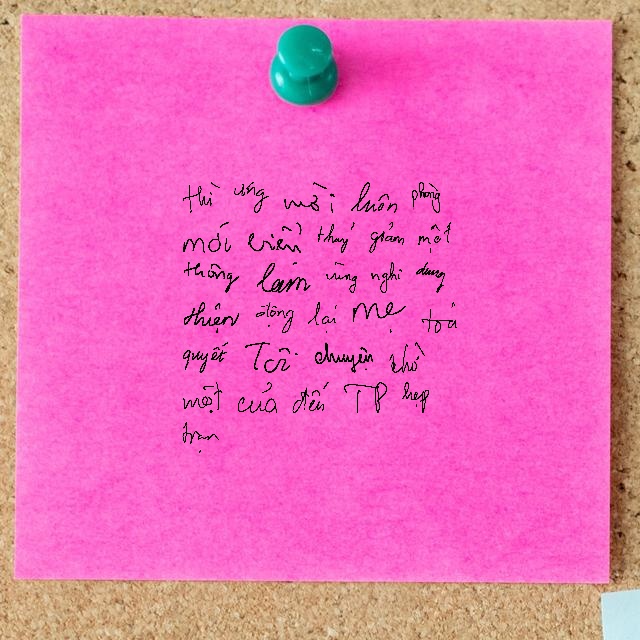 thì ứng mời luôn phòng
mới viên thuý giảm một
thông lắm vùng nghi dung
thiện động lại mẹ toà
quyết Tôi chuyện khó
một của đến TP hẹp
trạn